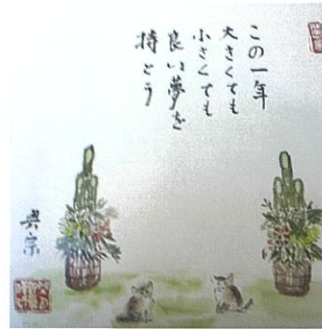 この一年
大きくても
小さくても
良い夢を
持とう